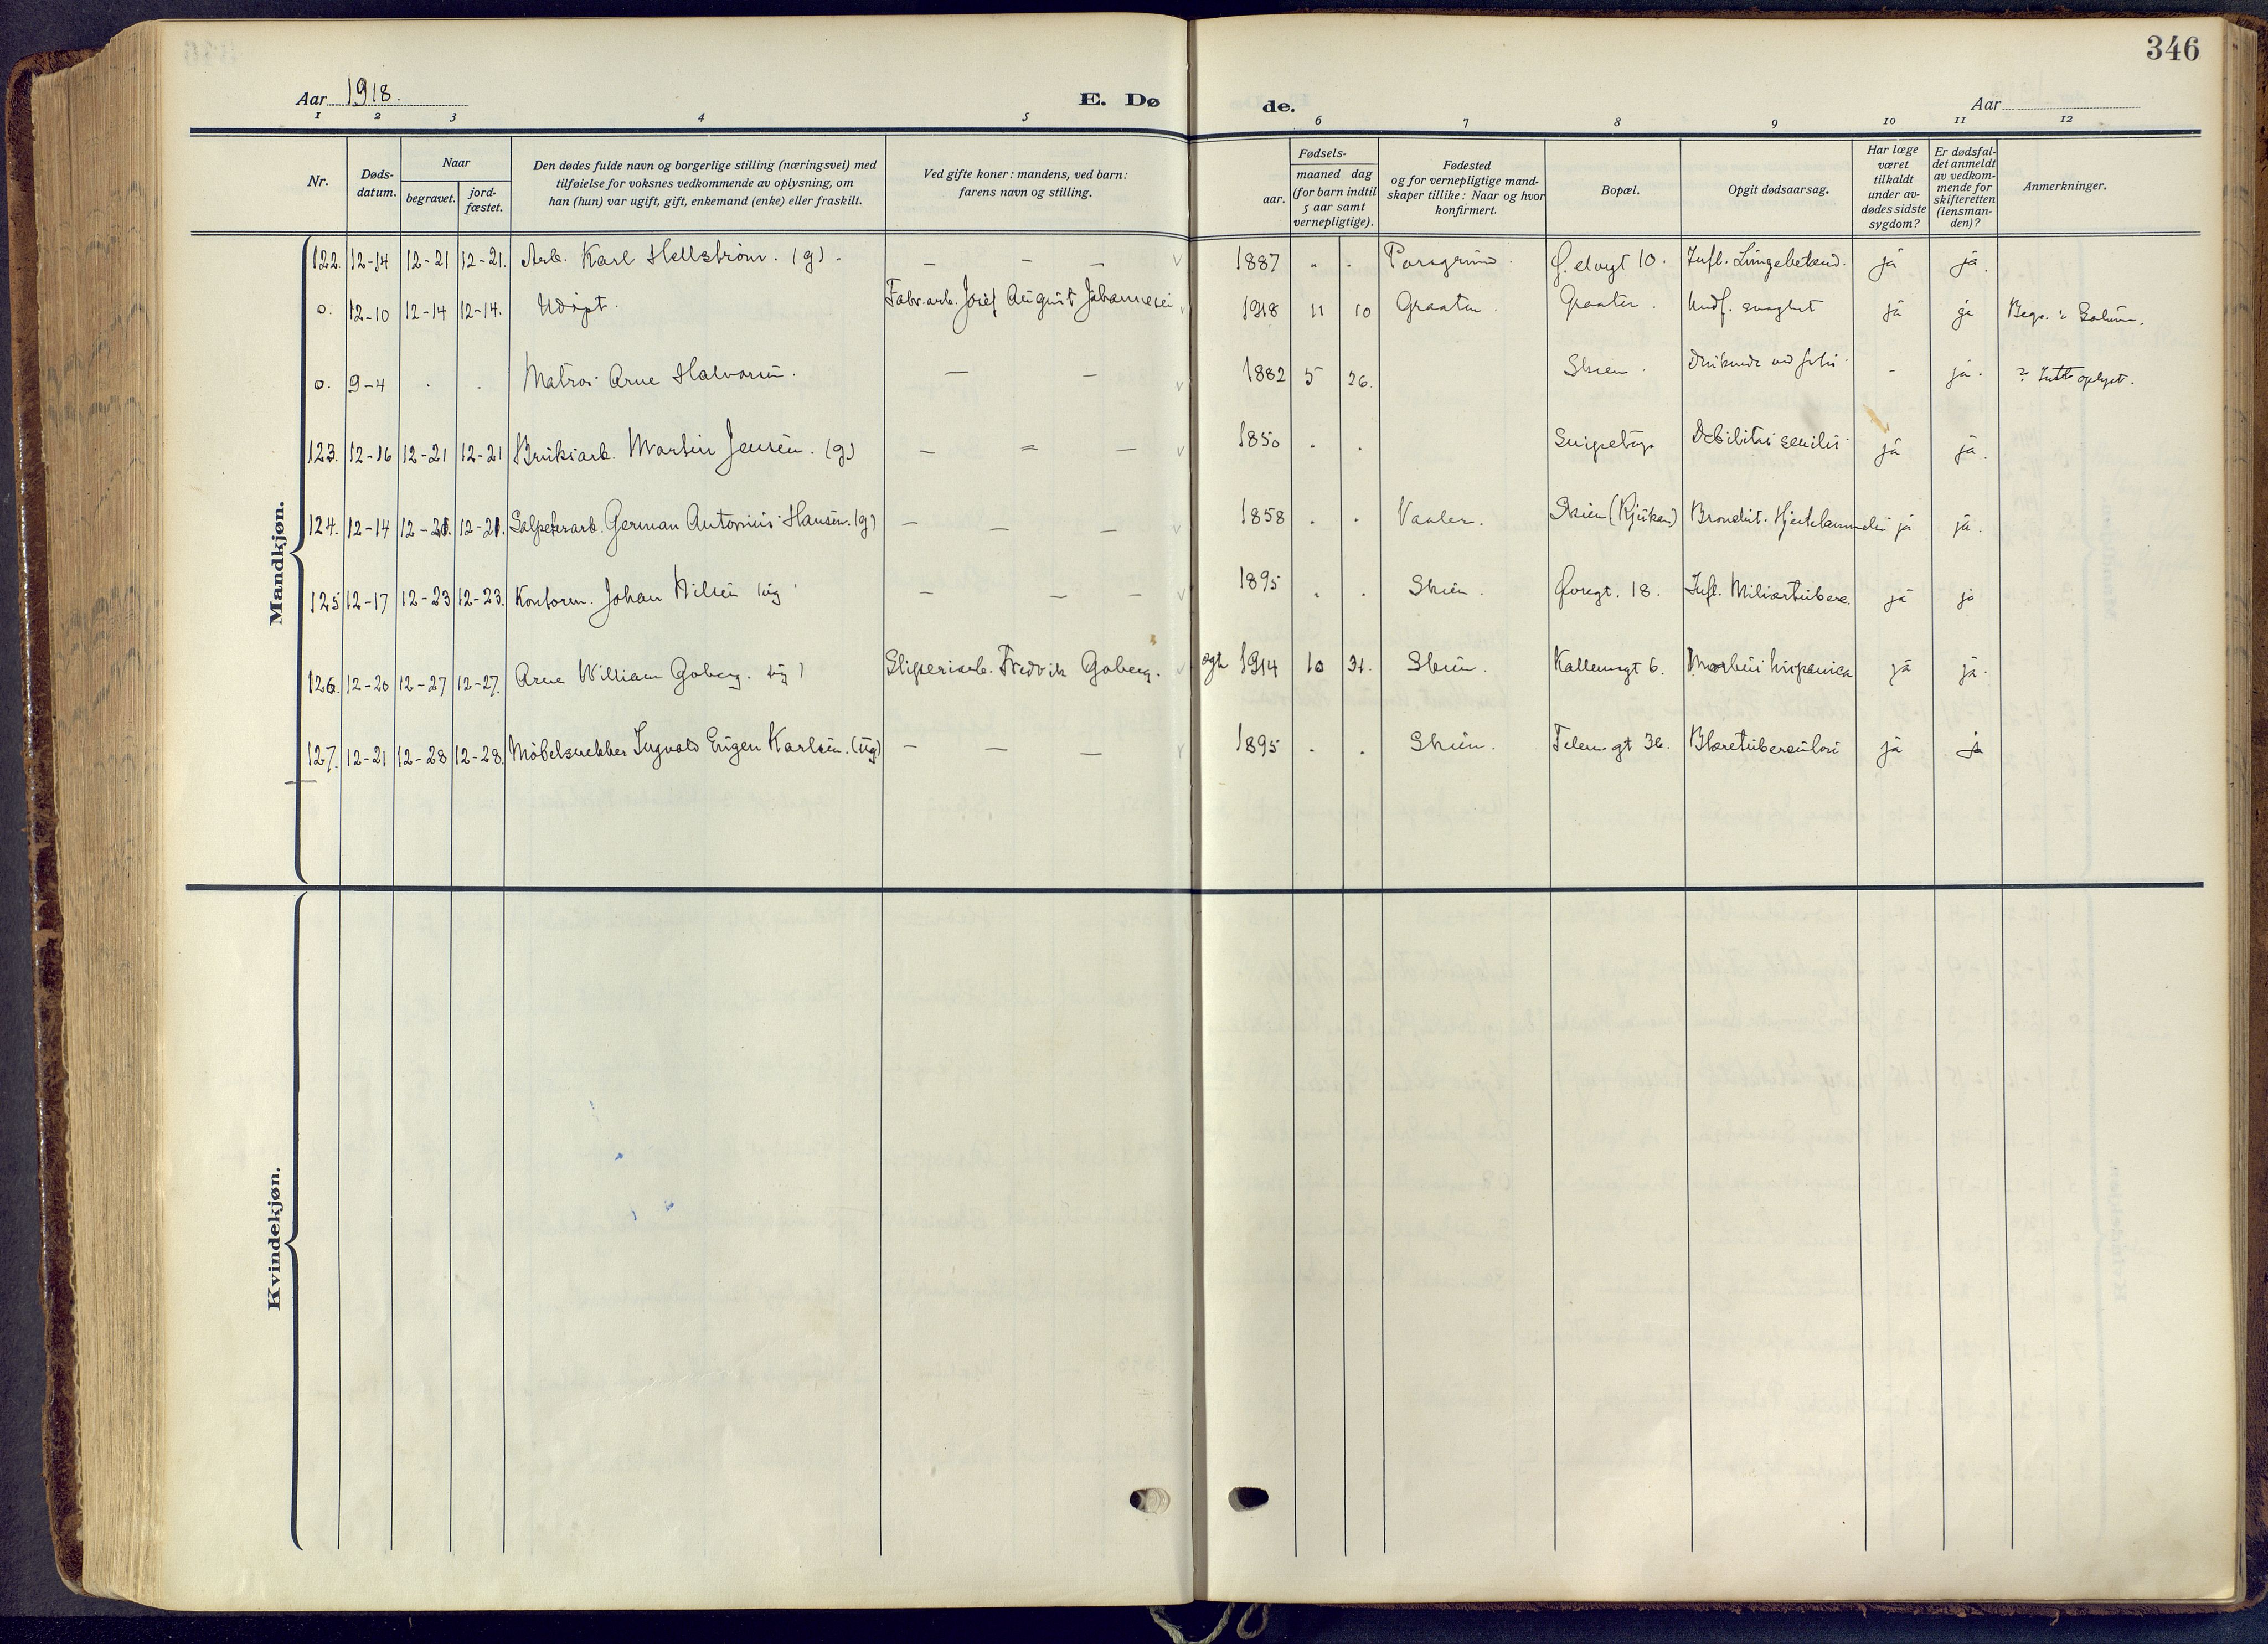 346
Aar 1918.
E. Dø
de.
Aar
1 2 3 4 5 6 7 8 9 10 11 12
Nr.
Døds-
datum.
Naar
begravet.
jord-
fæstet.
Den dødes fulde navn og borgerlige stilling (næringsvei) med
tilføielse for voksnes vedkommende av oplysning, om
han (hun) var ugift, gift, enkemand (enke) eller fraskilt.
Ved gifte koner: mandens, ved barn:
farens navn og stilling.
Fødsels-
aar.
maaned dag
(for barn indtil
5 aar samt
vernepligtige).
Fødested
og for vernepligtige mand-
skaper tillike: Naar og hvor
konfirmert.
Bopæl.
Opgit dødsaarsag.
Har læge
været
tilkaldt
under av-
dødes sidste
sygdom?
Er dødsfal-
det anmeldt
av vedkom-
mende for
skifteretten
(lensman-
den)?
Anmerkninger.
Mandkjøn.
122. 12-14 12-21 12-21. Arb. Karl Hellstrøm. (g) - — — — 1887 . . Porsgrund. Ø. elvegt 10. Infl. Lungebetænd. ja ja.
o. 12-10 12-14 12-14. Udøpt. Fabr.arb. Josef August Johannesen 1918 11 10 Graaten. Graaten. Medf. svaghet ja ja Begr. i Solum.
o. 9-4 . . Matros Arne Halvorsen. — — 1882 5 26. Skien. - ja. ? Intet oplyst.
123. 12-16 12-21 12-21 Bruksarb. Martin Jensen. (g) — — — 1850 . . Snipetorp Debilitas senilis ja ja.
124. 12-14 12-21. 12-21. Salpeterarb. German Antonius Hansen. (g) — — — 1858 . . Vaaler. Skien (Rjukan) Bronchit. Hjertelammelse ja ja.
125 12-17 12-23 12-23. Kontorm. Johan Nilsen (ug — — — 1895 . . Skien. Øvregt. 18. Infl. Miliærtuberc. ja ja
126. 12-20 12-27 12-27. Arne William Goberg. ug) Sliperiarb. Fredrik Goberg. ægte 1914 10 31. Skien. Kallumgt 6. Morbus hispanica ja ja.
127. 12-21 12-28 12-28. Møbelsnekker Ingvald Eugen Karlsen. (ug) — — — 1895 . . Skien. Telem.gt 36. Blæretuberculose ja ja
Kvindekjøn.